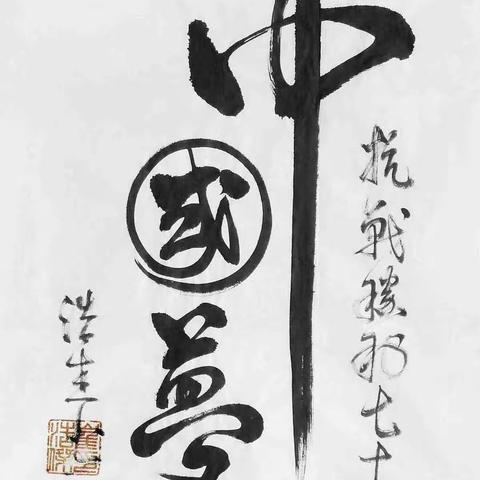 抗戰勝利七十
中國夢
浩生